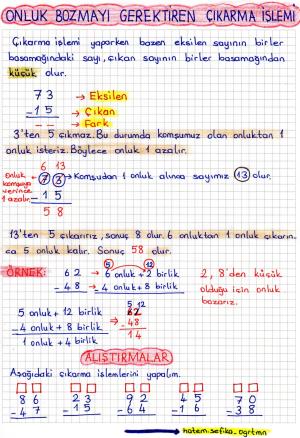 ONLUK BOZMAYI GEREKTİREN ÇIKARMA İŞLEMİ
Çıkarma işlemi yaparken bazen eksilen sayının birler
basamağındaki sayı, çıkan sayının birler basamağından
küçük olur.
7 3 → Eksilen
- 1 5 → Çıkan
-- → Fark
3'ten 5 çıkmaz. Bu durumda komşumuz olan onluktan 1
onluk isteriz. Böylece onluk 1 azalır.
6 13
Onluk komşuya verince 1 azalır.
7 3 → Komşudan 1 onluk alınca sayımız 13 olur.
- 1 5
5 8
13'ten 5 çıkarırız, sonuç 8 olur. 6 onluktan 1 onluk çıkarın-
ca 5 onluk kalır. Sonuç 58 olur.
ÖRNEK:
5 12
6 2 → 6 onluk + 2 birlik
- 4 8 → 4 onluk + 8 birlik
2, 8'den küçük
olduğu için onluk
bozarız.
5 onluk + 12 birlik
- 4 onluk + 8 birlik
1 onluk + 4 birlik
5 12
62
- 48
1 4
ALIŞTIRMALAR
Aşağıdaki çıkarma işlemlerini yapalım.
8 6 2 3 9 2 4 5 7 0
- 4 7 - 1 5 - 6 4 - 1 6 - 3 8
hatem.sefika_ogrtmn